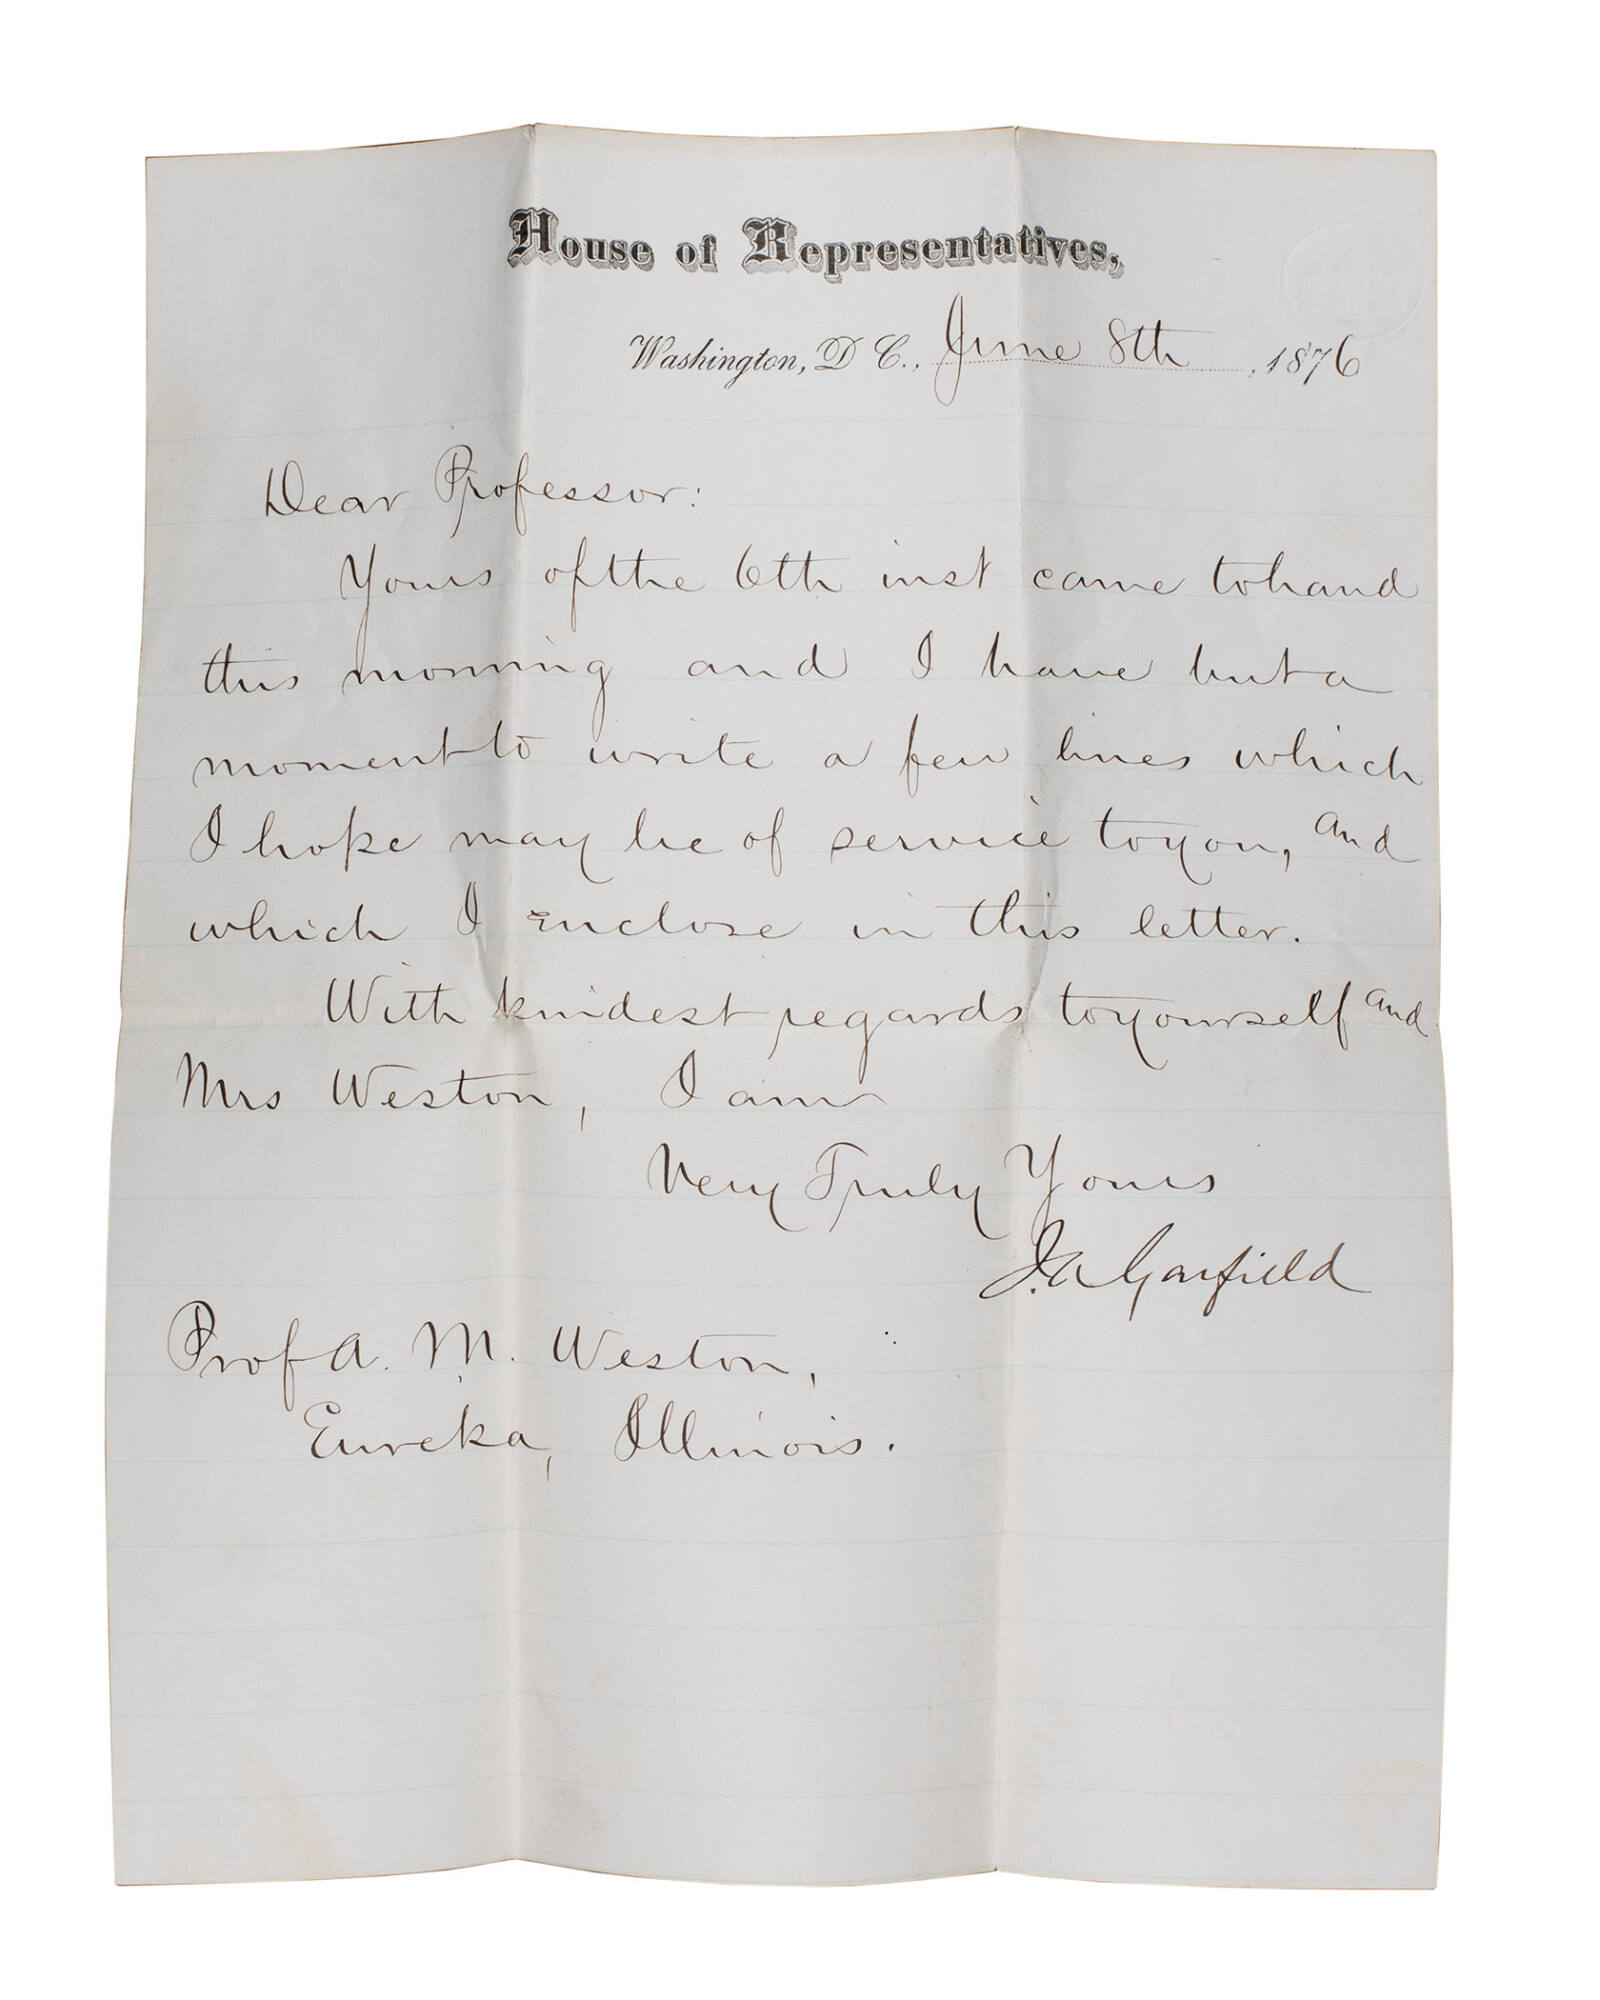 House of Representatives,
Washington, D C., June 8th, 1876
Dear Professor:
Yours of the 6th inst came to hand
this morning and I have but a
moment to write a few lines which
I hope may be of service to you, and
which I enclose in this letter.
With kindest regards to yourself and
Mrs Weston, I am
Very Truly Yours
J. A. Garfield
Prof A. M. Weston,
Eureka, Illinois.